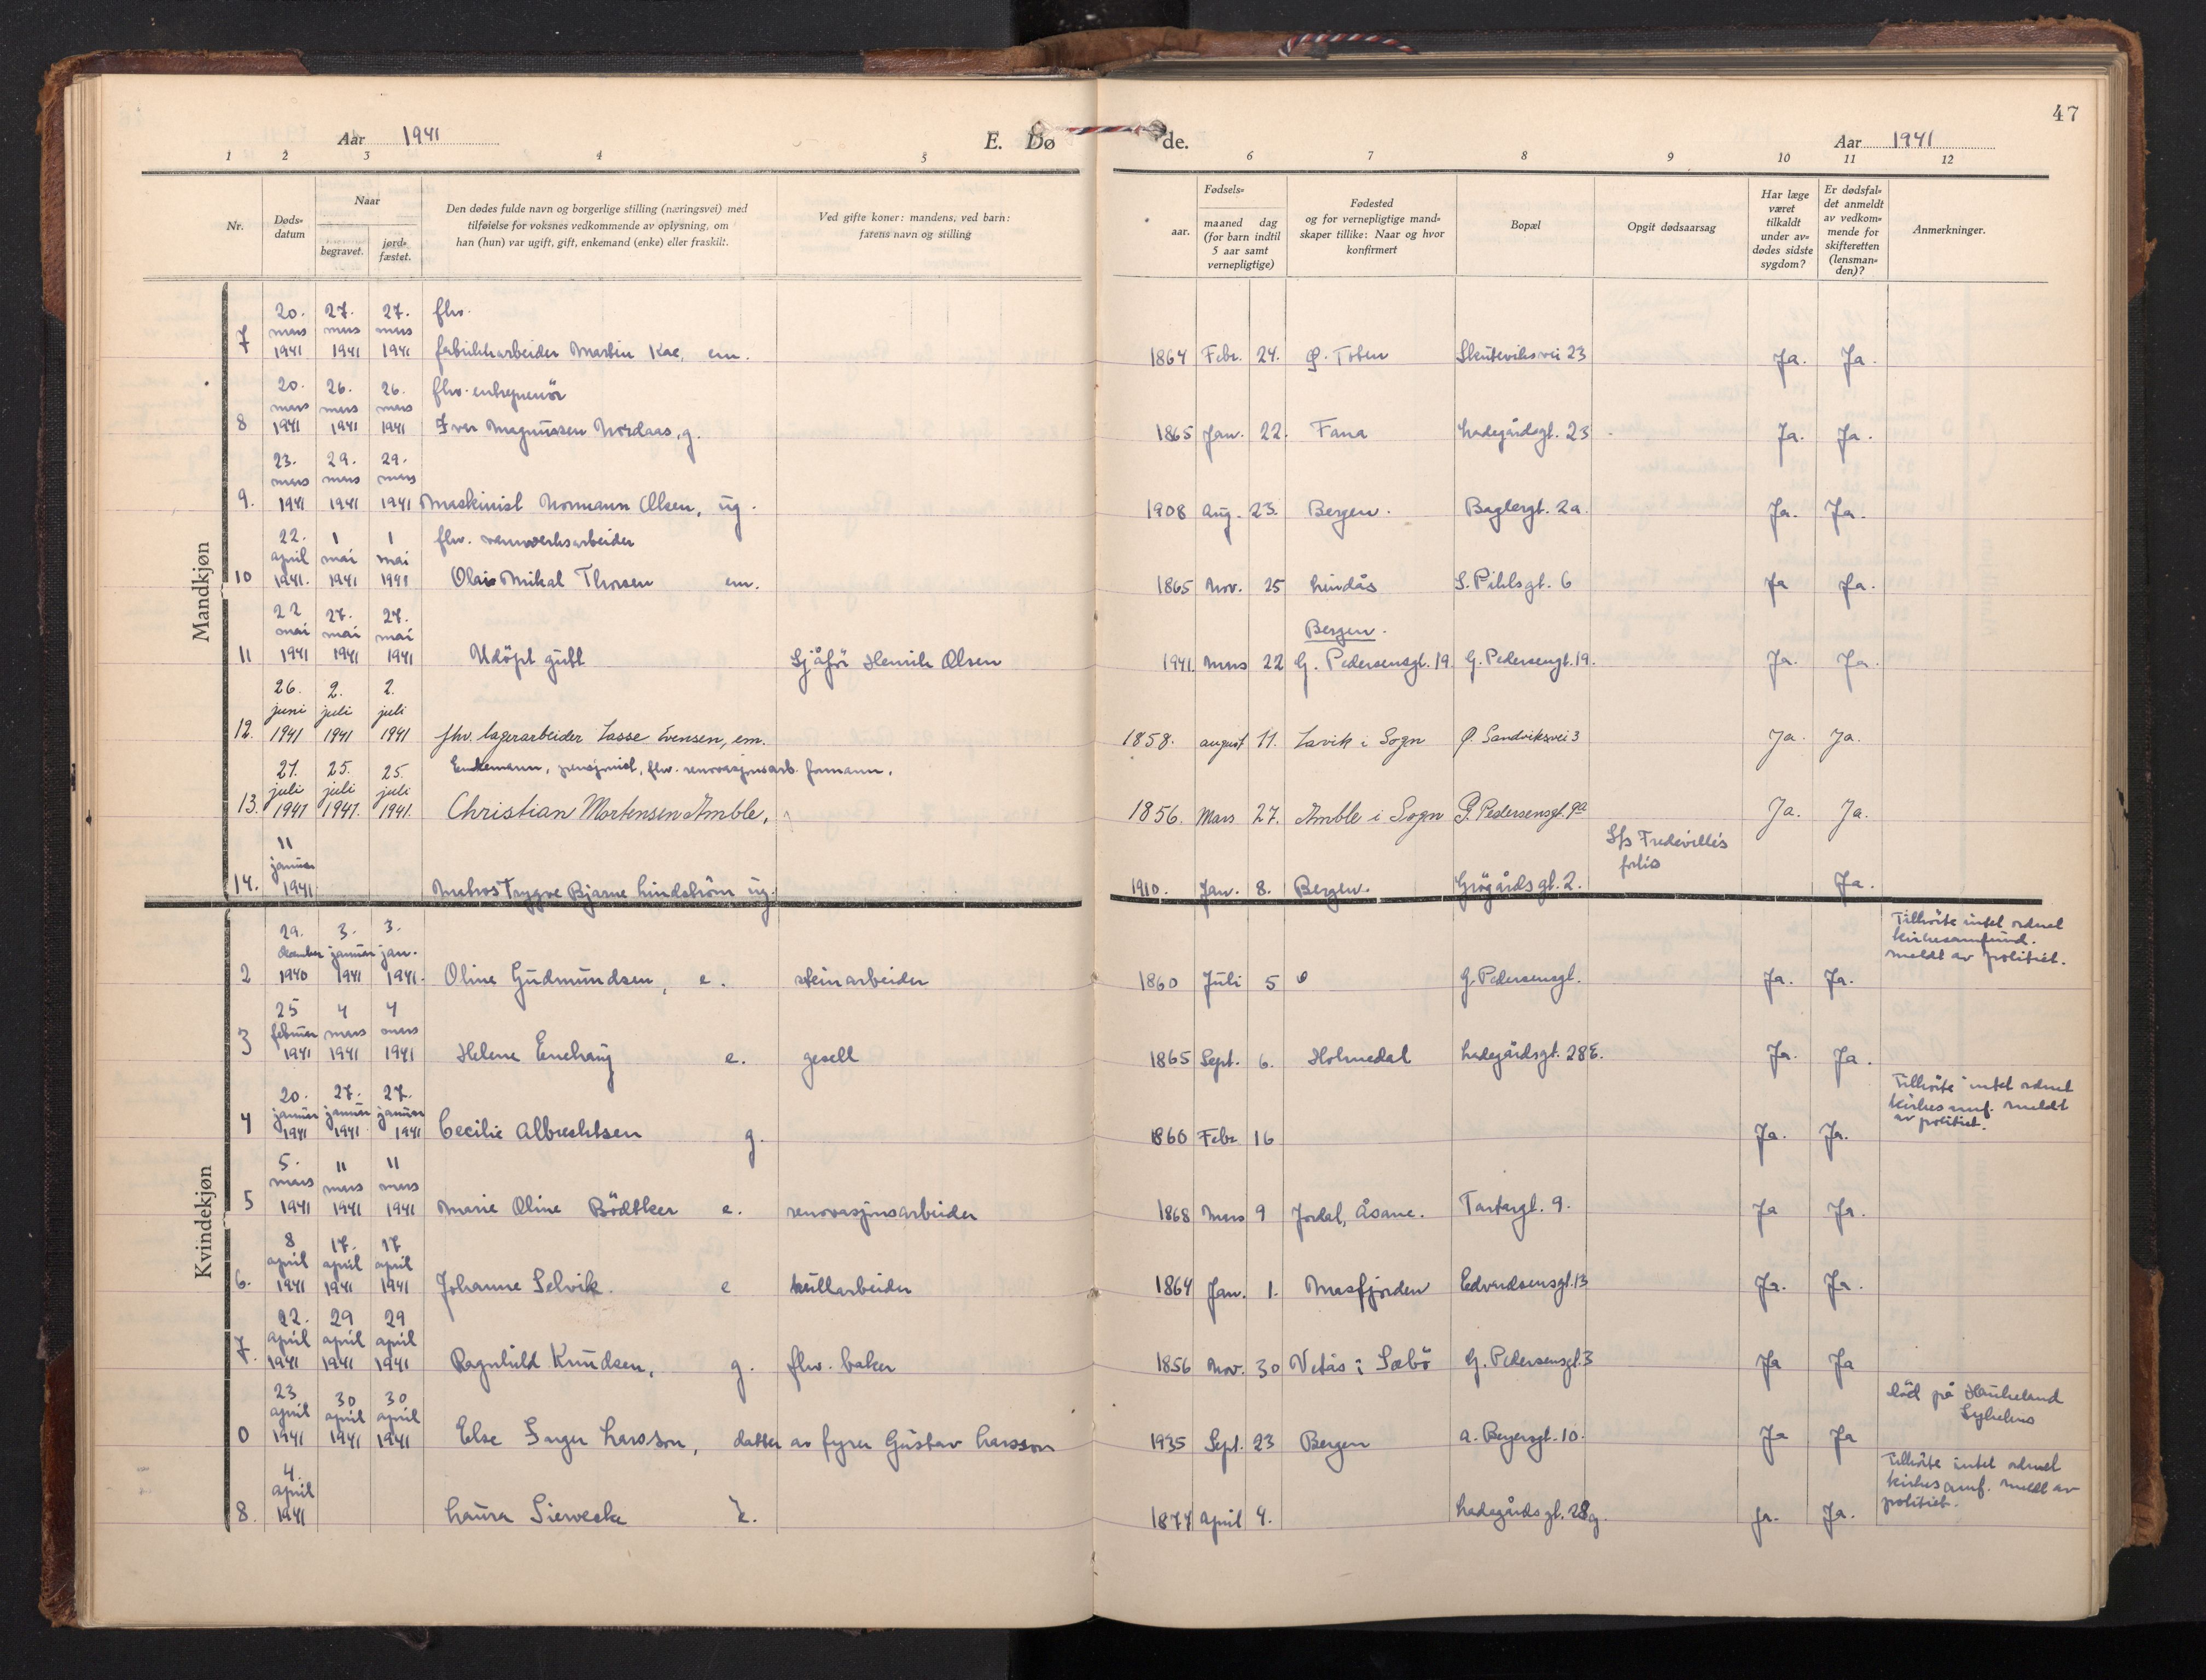 47
Aar 1941
E. Dø
de.
Aar 1941
1 2 3 4 5 6 7 8 9 10 11 12
Nr.
Døds-
datum
Naar
begravet.
jord-
fæstet.
Den dødes fulde navn og borgerlige stilling (næringsvei) med
tilføielse for voksnes vedkommende av oplysning, om
han (hun) var ugift, gift, enkemand (enke) eller fraskilt.
Ved gifte koner: mandens, ved barn:
farens navn og stilling
Fødsels-
aar.
maaned dag
(for barn indtil
5 aar samt
vernepligtige)
Fødested
og for vernepligtige mand-
skaper tillike: Naar og hvor
konfirmert
Bopæl
Opgit dødsaarsag
Har læge
været
tilkaldt
under av-
dødes sidste
sygdom?
Er dødsfal-
det anmeldt
av vedkom-
mende for
skifteretten
(lensman-
den)?
Anmerkninger.
Mandkjøn
20. 27. 27. flv.
mars mars mars
7 1941 1941 1941 fabrikkarbeider Martin Kae, em. 1864 Febr. 24. Ø. Toten Skuteviksvei 23 Ja. Ja.
20. 26. 26. flv. entreprenör
mars mars mars
8 1941 1941 1941 Iver Magnussen Nordaas, g. 1865 Jan. 22. Fana Ladegårdsgt. 23 Ja. Ja.
23. 29. 29.
mars mars mars
9. 1941 1941 1941 Maskinist Normann Olsen, ug. 1908 Aug. 23. Bergen. Baglergt. 2a. Ja. Ja.
22. 1 1 flv.
april mai mai
10 1941. 1941 1941 Olai Mikal Thorsen em. 1865 Nov. 25 Lindås S. Pihlsgt. 6 Ja Ja.
22 27. 27. Bergen.
mai mai mai
11 1941 1941 1941 Udöpt gutt Sjåför Henrik Olsen 1941. Mars 22 G. Pedersensgt. 19. G. Pedersensgt. 19. Ja. Ja.
26. 2. 2.
juni juli juli
12. 1941 1941 1941 fhv. lagerarbeider Lasse Evensen, em. 1858. august 11. Lavik i Sogn Ø. Sandviksvei 3 Ja. Ja.
21. 25. 25. Enkemann, pensjonist, flv. renovasjonsarb. formann.
juli juli juli
13. 1941 1941. 1941. Christian Mortensen Amble, 1856. Mars 27. Amble i Sogn G. Pedersensgt. 9a Ja. Ja.
11 S/s Fredevilles
januar forlis
14. 1941 Matros Trygve Bjarne Lindström ug. 1910. Jan. 8. Bergen. Grögårdsgt. 2. Ja.
Kvindekjøn
29. 3. 3. Tilhörte intet ordnet
desember januar jan. kirkesamfund.
meldt av politiet.
2 1940 1941 1941. Oline Gudmundsen, e. steinarbeider 1860 Juli 5 G. Pedersensgt. Ja. Ja.
25 4 4
februar mars mars
3 1941 1941 1941 Helene Enehaug e. gesell 1865 Sept. 6. Holmedal Ladegårdsgt. 28E. Ja. Ja.
20. 27. 27. Tilhörte intet ordnet
januar januar januar kirkesamf. meldt
av politiet.
4 1941 1941 1941 Cecilie Albrechtsen g. 1860 Febr. 16 Ja. Ja.
5. 11 11
mars mars mars
5 1941 1941 1941 Marie Oline Bödtker e. renovasjonsarbeider 1868 Mars 9 Jordal, Åsane. Tartargt. 9. Ja Ja.
8 17. 17
april april april
6. 1941 1941 1941 Johanne Selvik. e kullarbeider 1864 Jan. 1. Masfjorden Edvardsensgt. 13 Ja. Ja.
22. 29 29
april april april
7. 1941 1941 1941 Ragnhild Knudsen, g. flv. baker 1856 Nov. 30 Vetås i Sæbö G. Pedersensgt. 3 Ja Ja
23 30 30 död på Haukeland
april april april Sykehus
0 1941 1941 1941 Else Inger Larsson, datter av fyrer Gustav Larsson 1935 Sept. 23 Bergen A. Beyersgt. 10. Ja Ja
4. Tilhörte intet ordnet
april kirkesamf. meldt av
politiet.
8. 1941 Laura Sieveske 1877 April 4. Ladegårdsgt. 28g. Ja. Ja.